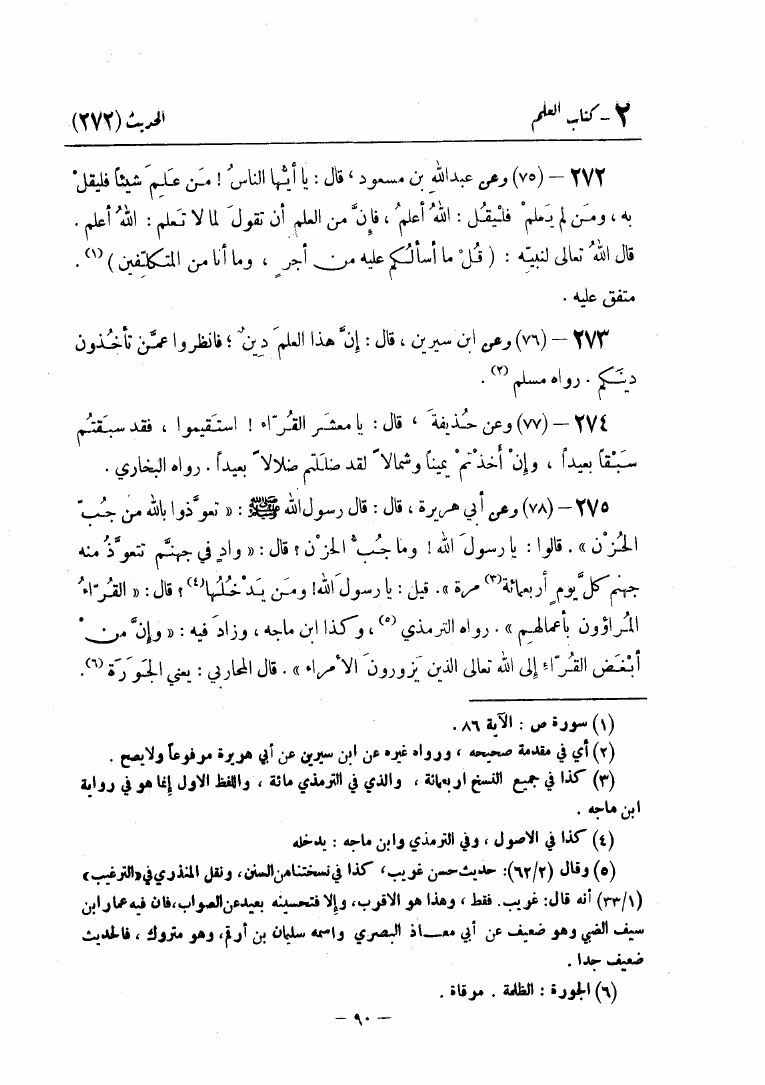 ٢ - كتاب العلم الحديث (٢٧٢)
٢٧٢ – (٧٥) وعن عبدالله بن مسعود ، قال : يا أيُّها الناسُ ! مَن عَلِمَ شيئاً فليقلْ
به ، ومَن لم يَعلمْ فلْيقُل : اللهُ أعلمُ ، فإنَّ من العلم أن تقولَ لما لا تَعلم : اللهُ أعلم .
قال اللهُ تعالى لنبيّه : ( قُلْ ما أسألُكم عليه من أجرٍ ، وما أنا من المتكلّفين ) (١) .
متفق عليه .
٢٧٣ – (٧٦) وعن ابن سيرين ، قال : إنَّ هذا العلمَ دِينٌ ؛ فانظروا عمَّن تأخُذون
دينَكم . رواه مسلم (٢) .
٢٧٤ – (٧٧) وعن حُذيفةَ ، قال : يا معشَر القُرّاء ! استَقيموا ، فقد سبَقتُم
سَبْقاً بعيداً ، وإنْ أخذْتمْ يميناً وشمالاً لقد ضلَلتم ضلالاً بعيداً . رواه البخاري .
٢٧٥ – (٧٨) وعن أبي هريرة ، قال : قال رسول الله ﷺ : « تعوَّذوا بالله من جُبّ
الحُزْن » . قالوا : يا رسولَ الله ! وما جُبُّ الحزْن ؟ قال : « وادٍ في جهنَّم تتعوَّذُ منه
جهنم كلَّ يوم أربعمائة (٣) مرة » . قيل : يا رسولَ الله! ومَن يَدْخُلُها (٤) ؟ قال : « القُرّاءُ
المُراؤون بأعمالهم » . رواه الترمذي (٥) ، وكذا ابن ماجه ، وزادَ فيه : « وإنَّ منْ
أبْغَض القُرّاء إلى الله تعالى الذين يَزورونَ الأمراء » . قال المحاربي : يعني الجَوَرَة (٦) .
(١) سورة ص : الآية ٨٦ .
(٢) أي في مقدمة صحيحه ، ورواه غيره عن ابن سيرين عن أبي هريرة مرفوعاً ولايصح .
(٣) كذا في جميع النسخ اربعمائة ، والذي في الترمذي مائة ، واللفظ الاول إنما هو في رواية
ابن ماجه .
(٤) كذا في الاصول ، وفي الترمذي وابن ماجه : يدخله
(٥) وقال (٦٢/٢): حديث حسن غريب، كذا في نسختنا من السنن، ونقل المنذري في «الترغيب»
(٣٣/١) أنه قال: غريب. فقط ، وهذا هو الاقرب، وإلا فتحسينه بعيد عن الصواب، فان فيه عمار ابن
سيف الضبي وهو ضعيف عن أبي معاذ البصري واسمه سليمان بن أرقم، وهو متروك ، فالحديث
ضعيف جدا .
(٦) الجورة : الظلمة . مرقاة .
– ٩٠ –